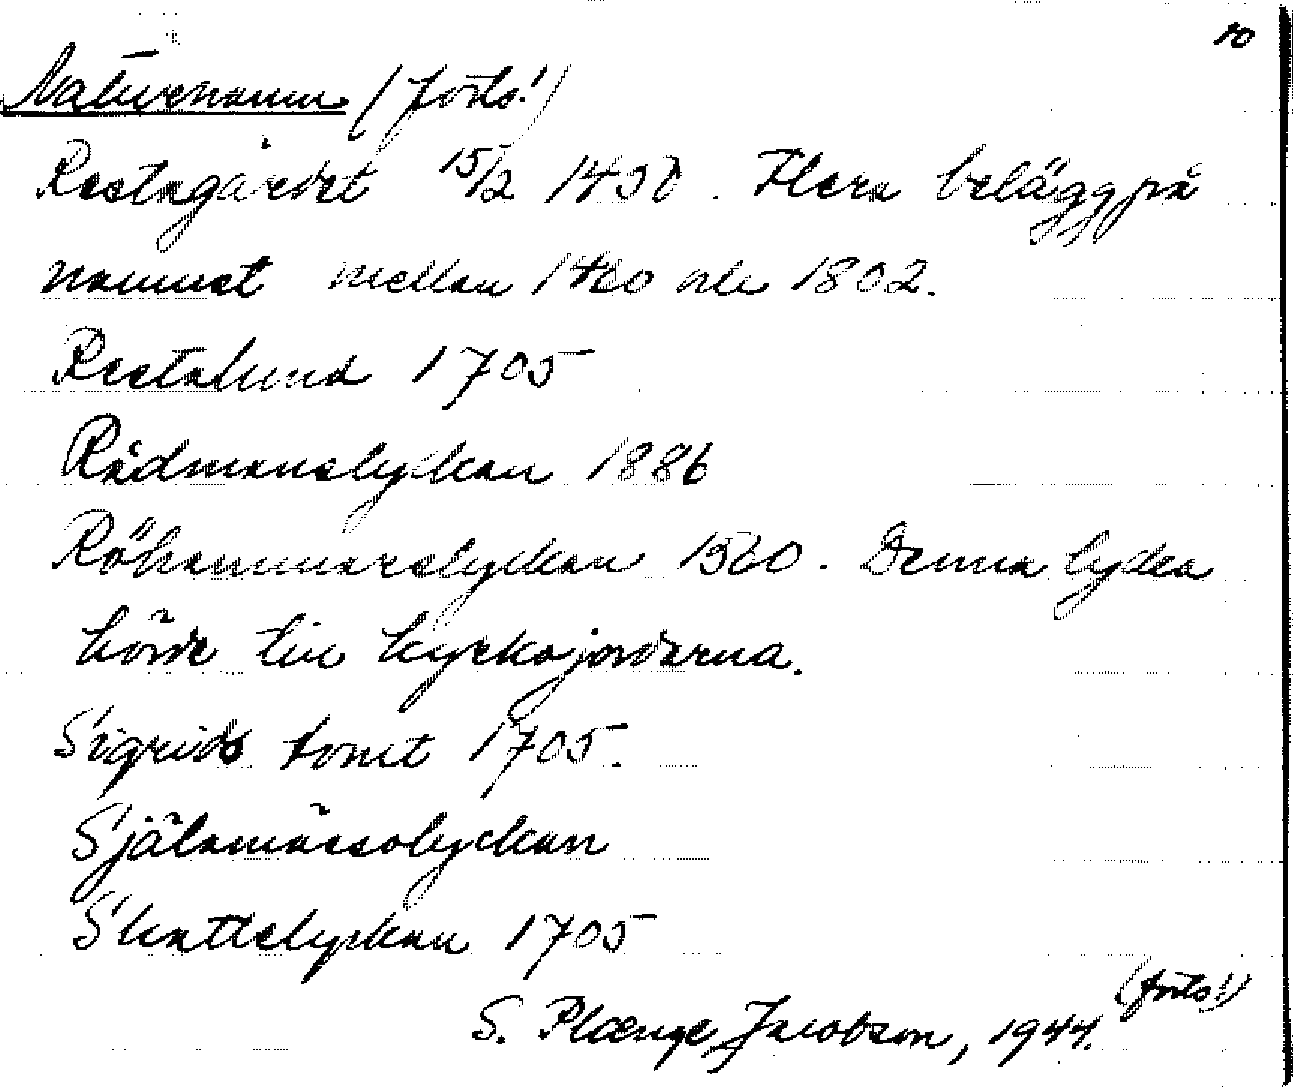 10
Naturnamn (forts!)
Restagärdet 15/2 1450. Flera belägg på
namnet mellan 1460 och 1802.
Restalund 1705
Rådmanslyckan 1886
Röhammarslyckan 1560. Denna lycka
hörde till kyrkojordarna.
Sigrids tomt 1705.
Själamässolyckan
Skattelyckan 1705
(forts!)
S. Plænge Jacobson, 1944.